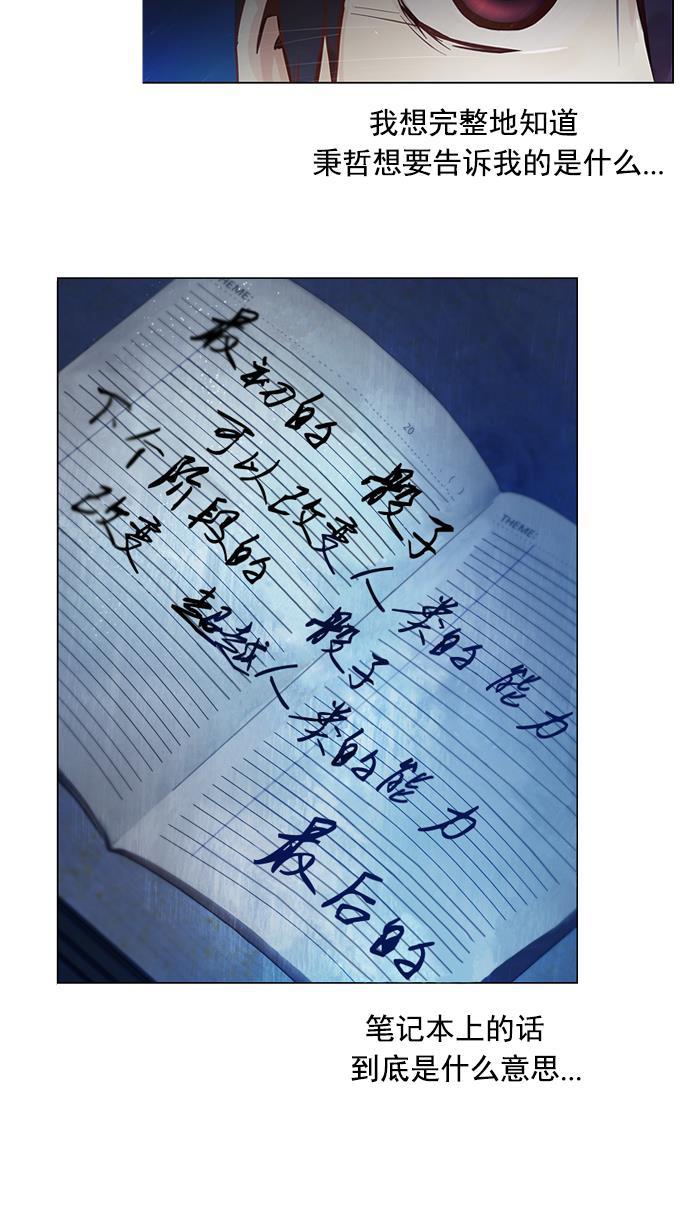 我想完整地知道
秉哲想要告诉我的是什么...
THEME:
最初的 骰子
可以改变人类的能力
下个阶段的 骰子
改变 超越人类的能力
最后的
20
THEME:
笔记本上的话
到底是什么意思...